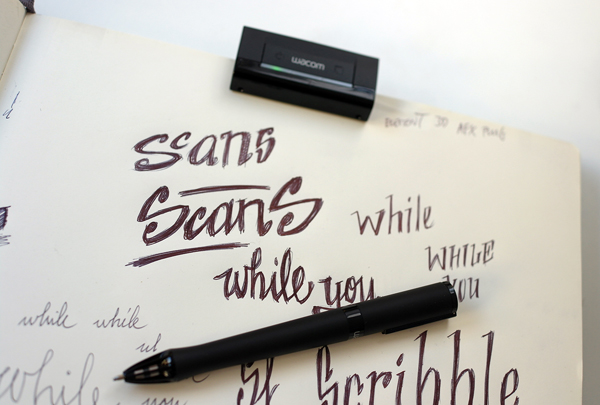 wacom
scans
Scans
while
while you
WHILE
YOU
while while
while
Scribble